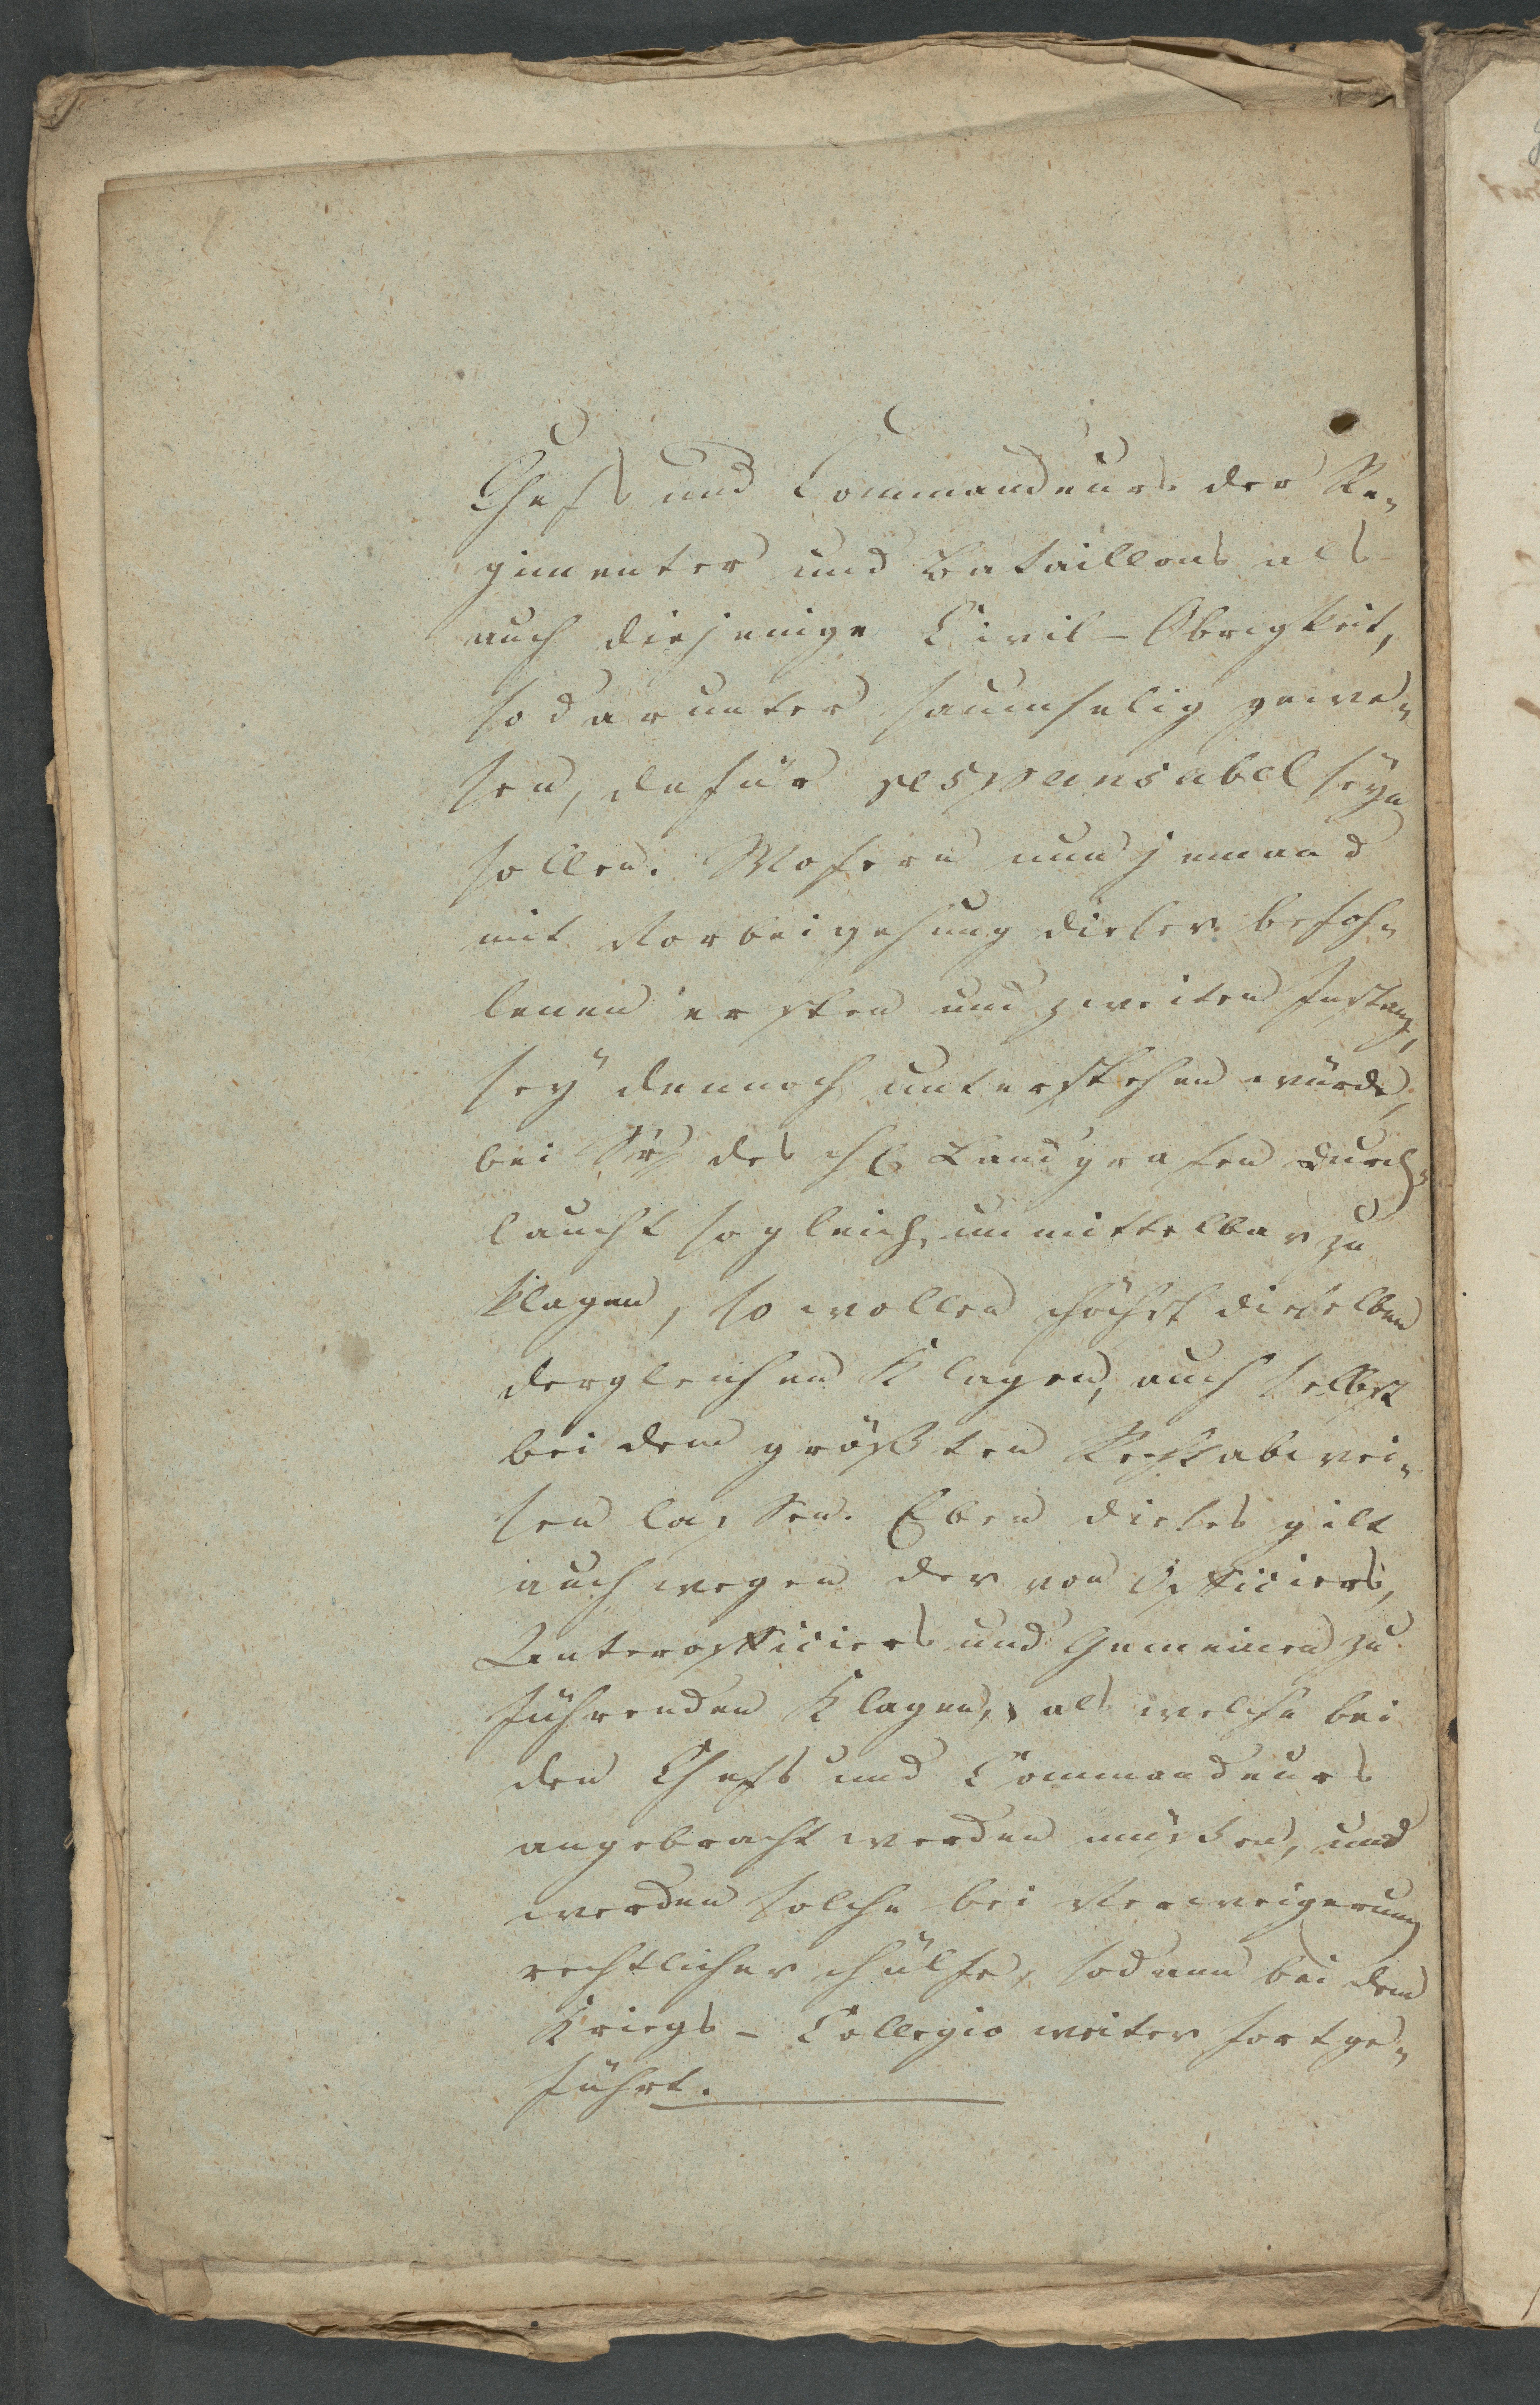 Chefs und Commandeurs der Re-
gimenter und Bataillons als
auch diejenige Civil-Obrigkeit,
so darunter saumselig gewe-
sen, dafür responsabel seyn
sollen. Wofern nun jemand
mit Vorbeigehung dieser befoh-
lenen ersten und zweiten Instanz,
sich dennoch unterstehen würde,
bei Sr des H Landgrafen Durch-
laucht sogleich unmittelbar zu
klagen, so wollen Höchst dieselben
dergleichen Klagen, auch selbst
bei dem größten Recht abwei-
sen lassen. Eben dieses gilt
auch wegen der von Officiers,
Unterofficiers und Gemeinen zu
führenden Klagen, als welche bei
den Chefs und Commandeurs
angebracht werden müssen, und
werden solche bei Verweigerung
rechtlicher Hülfe, sodann bei dem
Kriegs-Collegio weiter fortge-
führt.